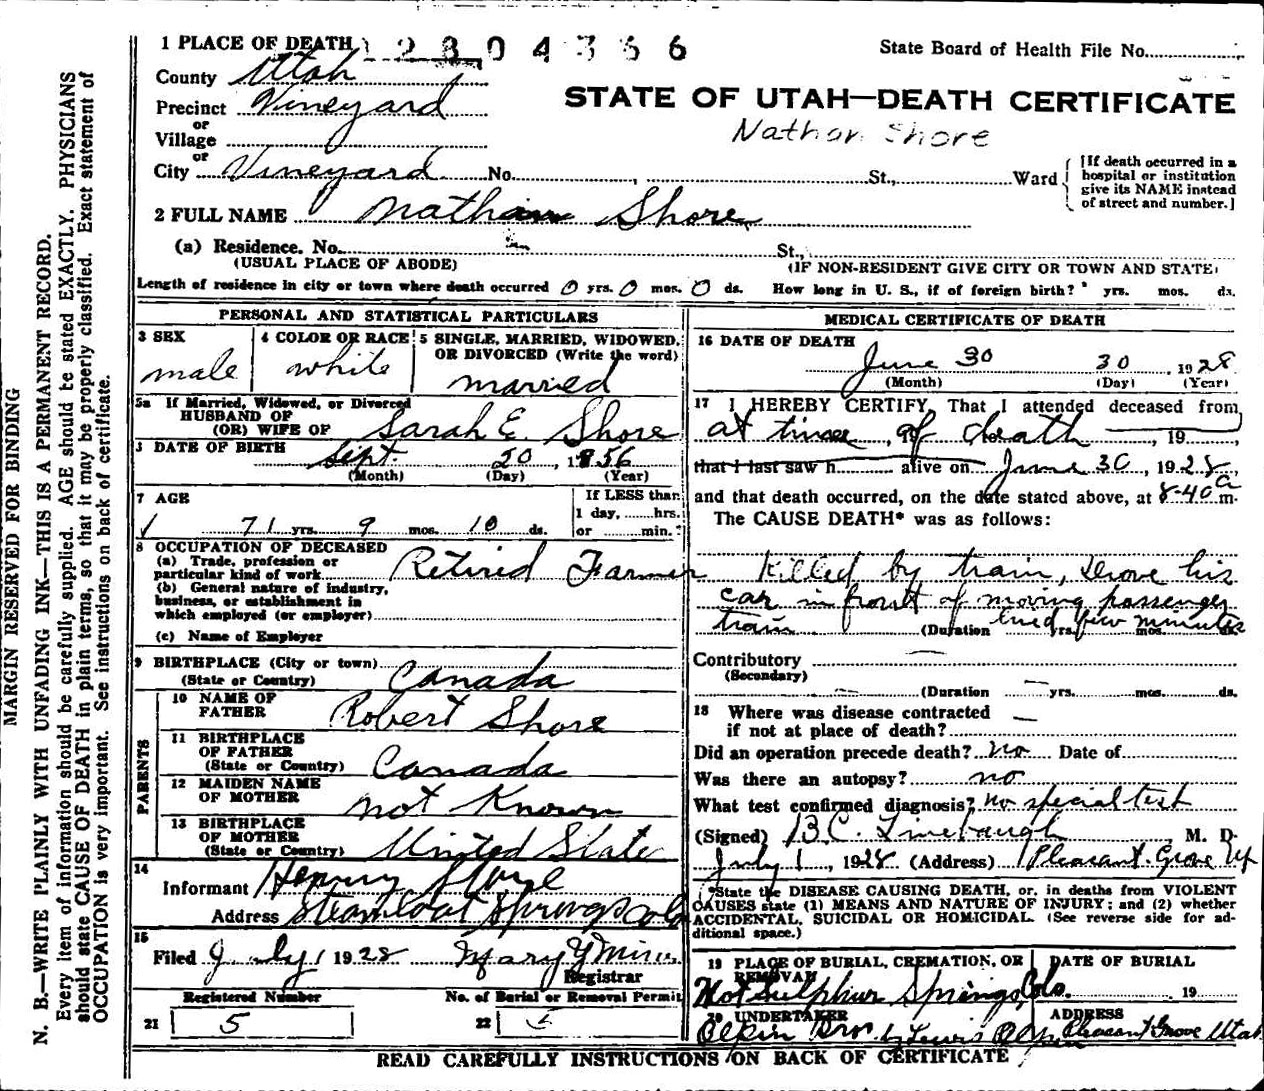 MARGIN RESERVED FOR BINDING
N. B.—WRITE PLAINLY WITH UNFADING INK—THIS IS A PERMANENT RECORD.
Every item of information should be carefully supplied. AGE should be stated EXACTLY. PHYSICIANS
should state CAUSE OF DEATH in plain terms, so that it may be properly classified. Exact statement of
OCCUPATION is very important. See instructions on back of certificate.
1 PLACE OF DEATH
State Board of Health File No.
County Utah
Precinct Vineyard
STATE OF UTAH—DEATH CERTIFICATE
Nathan Shore
or
Village
or
City Vineyard No. , St., Ward
[If death occurred in a
hospital or institution
give its NAME instead
of street and number.]
2 FULL NAME Nathan Shore
(a) Residence. No. St.,
(USUAL PLACE OF ABODE) (IF NON-RESIDENT GIVE CITY OR TOWN AND STATE)
Length of residence in city or town where death occurred 0 yrs. 0 mos. 0 ds. How long in U. S., if of foreign birth? yrs. mos. ds.
PERSONAL AND STATISTICAL PARTICULARS
3 SEX
male
4 COLOR OR RACE
white
5 SINGLE, MARRIED, WIDOWED,
OR DIVORCED (Write the word)
married
5a If Married, Widowed, or Divorced
HUSBAND OF
(OR) WIFE OF Sarah E. Shore
DATE OF BIRTH
Sept. 20, 1856
(Month) (Day) (Year)
7 AGE
71 yrs. 9 mos. 10 ds.
If LESS than
1 day, hrs.
or min.
8 OCCUPATION OF DECEASED
(a) Trade, profession or
particular kind of work Retired Farmer
(b) General nature of industry,
business, or establishment in
which employed (or employer)
(c) Name of Employer
9 BIRTHPLACE (City or town)
(State or Country) Canada
PARENTS
10 NAME OF
FATHER Robert Shore
11 BIRTHPLACE
OF FATHER
(State or Country) Canada
12 MAIDEN NAME
OF MOTHER not Known
13 BIRTHPLACE
OF MOTHER
(State or Country) United State
14
Informant Henry
Address Steamboat Springs Colo
15
Filed July 1 1928 Mary
Registrar
Registered Number
21 5
No. of Burial or Removal Permit
22
MEDICAL CERTIFICATE OF DEATH
16 DATE OF DEATH
June 30 30, 1928
(Month) (Day) (Year)
17 I HEREBY CERTIFY, That I attended deceased from
at time of death, 19
that I last saw h alive on June 30, 1928,
and that death occurred, on the date stated above, at 8-40 a m.
The CAUSE DEATH* was as follows:
Killed by train, drove his
car in front of moving passenger
train (Duration lived few minutes yrs. mos. ds.
Contributory
(Secondary)
(Duration yrs. mos. ds.
18 Where was disease contracted
if not at place of death?
Did an operation precede death? no Date of
Was there an autopsy? no
What test confirmed diagnosis? no special test
(Signed) B.C. Linebaugh M. D.
July 1, 1928 (Address) Pleasant Grove
*State the DISEASE CAUSING DEATH, or, in deaths from VIOLENT
CAUSES state (1) MEANS AND NATURE OF INJURY; and (2) whether
ACCIDENTAL, SUICIDAL OR HOMICIDAL. (See reverse side for ad-
ditional space.)
19 PLACE OF BURIAL, CREMATION, OR
REMOVAL
Hot Sulphur Springs Colo.
DATE OF BURIAL
19
20 UNDERTAKER
Olpin Bros by Lewis Olpin
ADDRESS
Pleasant Grove Utah
READ CAREFULLY INSTRUCTIONS ON BACK OF CERTIFICATE